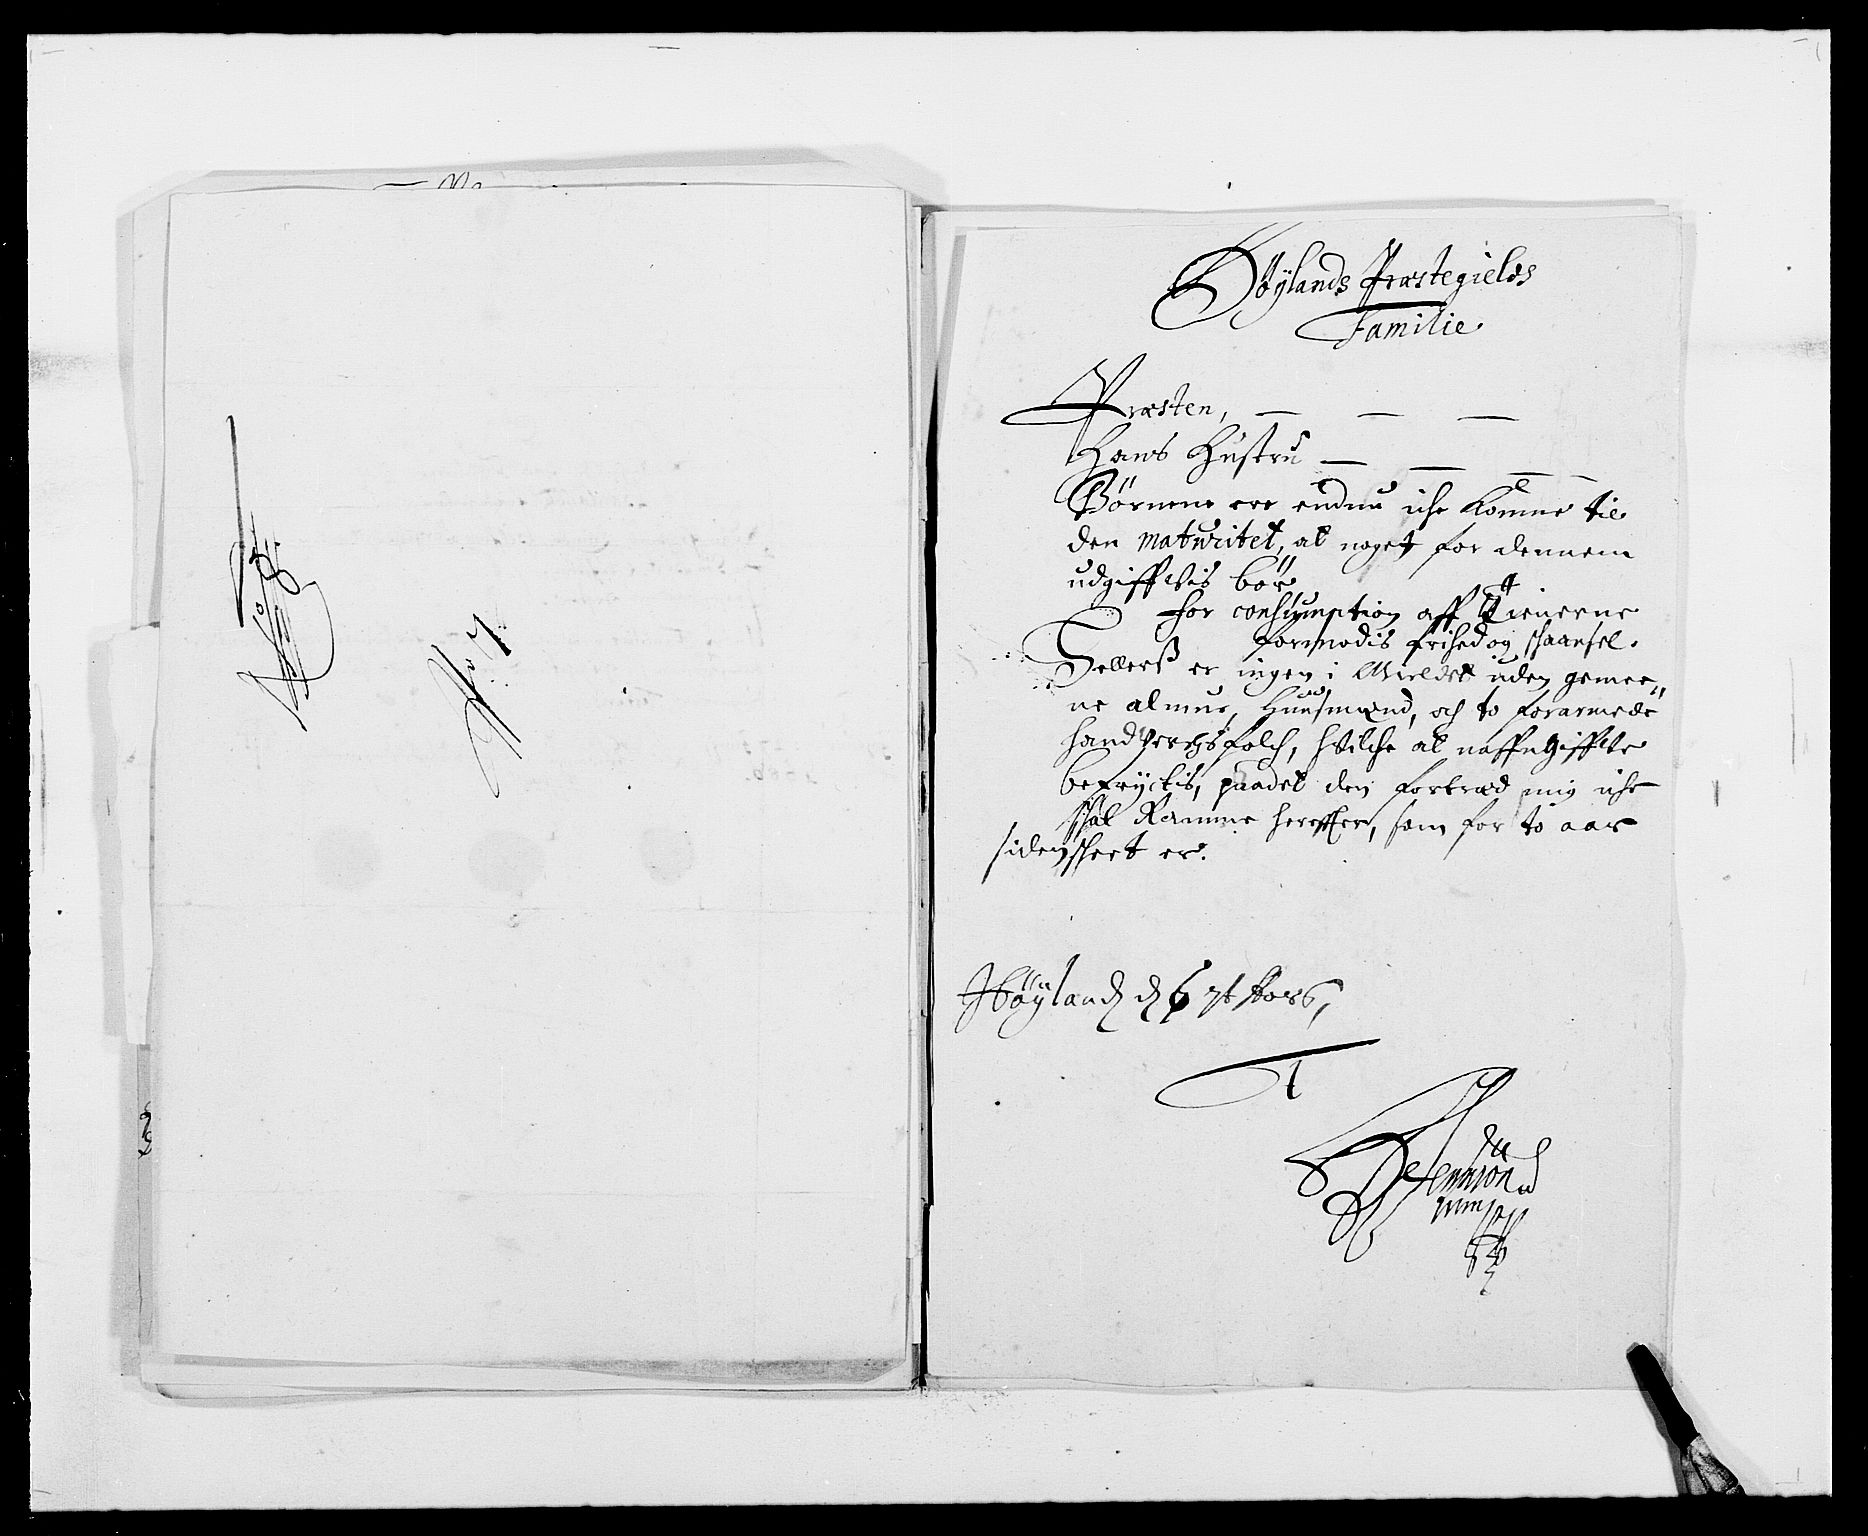 No 8.
No 7
Höÿlands Præstegields
Familie.
Præsten,
Hans Hustru
Börnene ere endnu iche komne til
den maturitet, at noget for dennem
udgifftis bör
for consumption aff Tienerne
formodis frihed og schaansel.
Sellers er ingen i Gieldet uden gemee„
ne almue, Huusmænd, och to forarmede
handverchsfolch, hvilche at naffngiffve
befryctis, paadet den fortræd mig iche
schal Ramme hereffter, som for to aar
siden scheet er.
Höÿland d 6